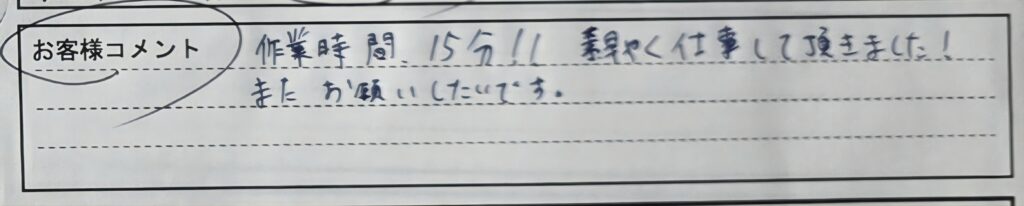 お客様コメント 作業時間、15分!! 素早やく仕事して頂きました!
またお願いしたいです。